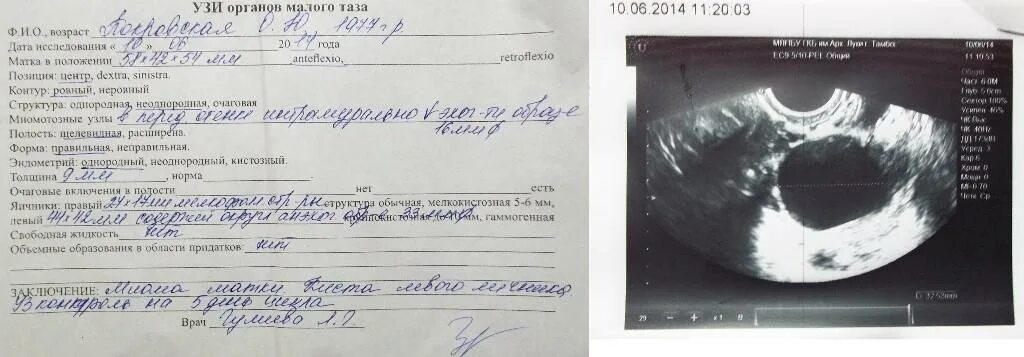 УЗИ органов малого таза
Ф.И.О., возраст Покровская О. Ю. 1977 г р.
Дата исследования «10» 06 2014 года
Матка в положении 58×42×54 мм anteflexio, retroflexio
Позиция: центр, dextra, sinistra.
Контур: ровный, неровный
Структура: однородная, неоднородная, очаговая
Миомотозные узлы в перед стенке интрамурально ↓ эхог-ти образ-е
16 мм ф
Полость: щелевидная, расширена.
Форма: правильная, неправильная.
Эндометрий: однородный, неоднородный, кистозный.
Толщина 9 мм, норма
Очаговые включения в полости нет есть
Яичники: правый 27×17 мм структура обычная, мелкокистозная 5-6 мм,
левый 44×42 мм содержит округл анэхог 33 мм мм, гаммогенная
Свободная жидкость нет
Объемные образования в области придатков: нет
ЗАКЛЮЧЕНИЕ: Миома матки. Киста левого яичника.
УЗ контроль на 5 день цикла
Врач
10.06.2014 11:20:03
МЛПБУ ГКБ им Арх. Луки г. Тамбо 10/06/14
EC9-5/10-PEL Общий 11:10:53
Общий
Част 6.0M
Глуб 5.6cm
Сектор 100%
Усилен 46%
ЧК Выс
ЧК 40Hz
ДД 173dB
Усред. 3
Кар 6
Хром. 0
Мощн 0
MI 0.70
Четк Ср
D: 32.53mm
29 − + x1 В